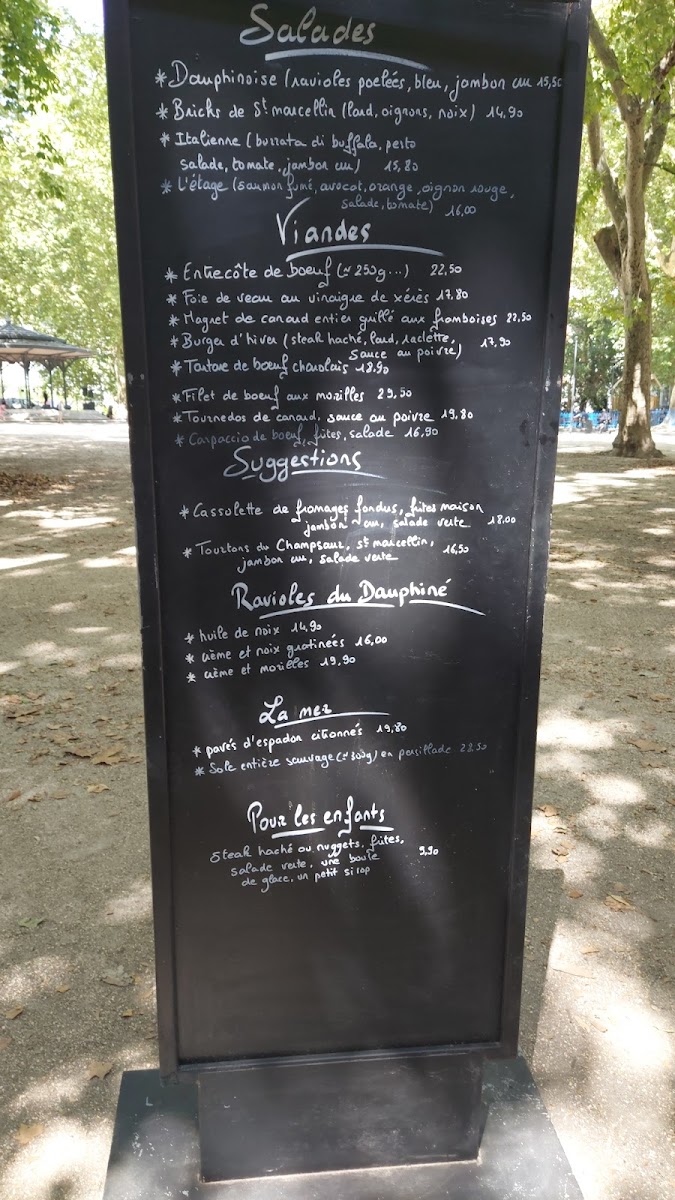 Salades
* Dauphinoise (ravioles poelées, bleu, jambon cru 15,50
* Bricks de St marcellin (lard, oignons, noix) 14,90
* Italienne (burrata di buffala, pesto
salade, tomate, jambon cru) 15,80
* L'étage (saumon fumé, avocat, orange, oignon rouge,
salade, tomate) 16,00
Viandes
* Entrecôte de boeuf (≈ 250g...) 22,50
* Foie de veau au vinaigre de xérès 17,80
* Magret de canard entier grillé aux framboises 22,50
* Burger d'hiver (steak haché, lard, raclette, 17,90
sauce au poivre)
* Tartare de boeuf charolais 18,90
* Filet de boeuf aux morilles 29,50
* Tournedos de canard, sauce au poivre 19,80
* Carpaccio de boeuf, frites, salade 16,90
Suggestions
* Cassolette de fromages fondus, frites maison
jambon cru, salade verte 18,00
* Tourtons du Champsaur, st marcellin, 16,50
jambon cru, salade verte
Ravioles du Dauphiné
* huile de noix 14,90
* crème et noix gratinées 16,00
* crème et morilles 19,90
La mer
* pavés d'espadon citronnés 19,80
* Sole entière sauvage (≈ 300g) en persillade 28,50
Pour les enfants
Steak haché ou nuggets, frites, 9,90
salade verte, une boule
de glace, un petit sirop